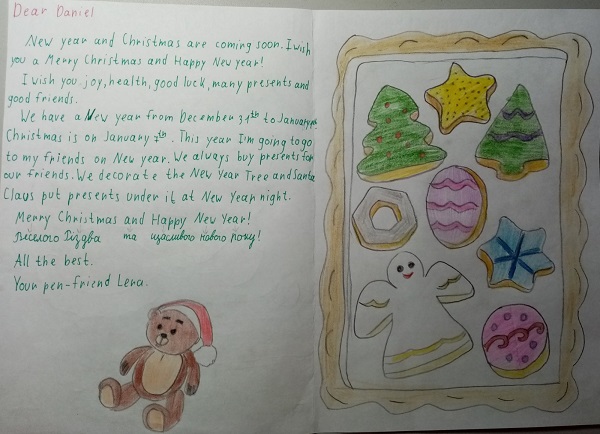 Dear Daniel
New year and Christmas are coming soon. I wish
you a Merry Christmas and Happy New year!
I wish you joy, health, good luck, many presents and
good friends.
We have a New year from December 31th to January
Christmas is on January 7th. This year I'm going to go
to my friends on New year. We always buy presents for
our friends. We decorate the New Year Tree and Santa
Claus put presents under it at New Year night.
Merry Christmas and Happy New Year!
Веселого Різдва та щасливого нового року!
All the best.
Your pen-friend Lena.